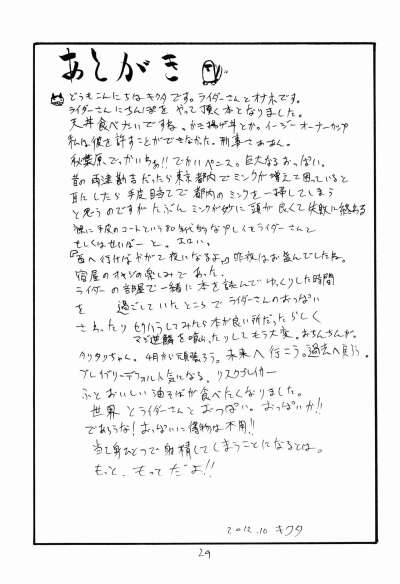 あとがき
どうもこんにちはキクタです。ライダーさんとオナネです。
ライダーさんにちんぽを やって頂く本となりました。
天丼食べたいですね。かき揚げ丼とか。イージーオーナーカップ
私は彼を許すことができなかった。刑事さああん。
秋葉原でっかいちぁ!! でかいペニス。巨大なるおっぱい。
昔の両津勘吉だったら東京都内でミンクが増えて困っていると
耳にしたら 毛皮目当てで都内のミンクを一掃してしまう
と思うのですが たぶん ミンクが妙に頭が良くて 失敗に終わる
毛皮のコートという80年代的なプレイでライダーさんと
もしくはせいばーと。エロい。
『西へ行けばやがて夜になるよ』昨夜はお盛んでしたね。
宿屋のオヤジの楽しみであった。
ライダーの部屋で一緒に本を読んで ゆっくりした時間
を 過ごしていたところで ライダーさんのおっぱい
さわったり セクハラしてみたら 本が良い所だったらしく
マジ逆鱗を喰らったりしてもう大変。おちんちんが。
タリタリちゃん。4月から頑張ろう。未来へ行こう。過去へ戻ろう。
ブレイブリーデフォルト気になる。リスクブレイカー
ふとおいしい油そばが食べたくなりました。
世界とライダーさんとおっぱい。おっぱいか!!
であろうな! おっぱいに偽物は不用!!
当て身ひとつで射精してしまうことになるとは。
もっと、もってだよ!!
2012.10 キクタ
29